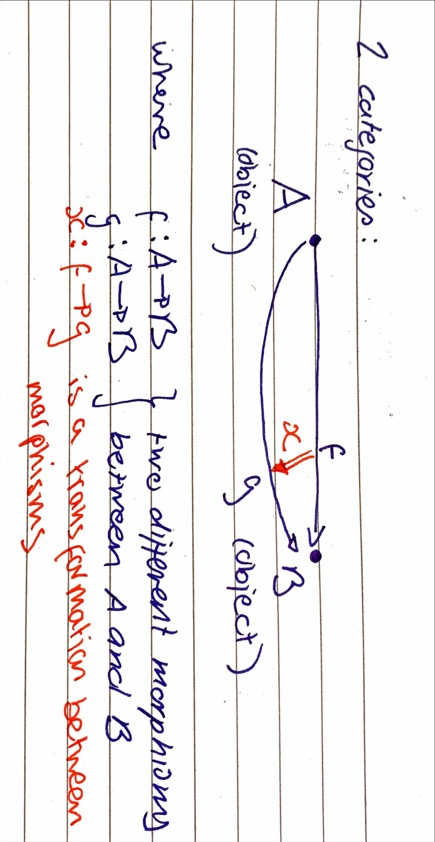 2 categories:
f
A
x
B
(object)
g (object)
where f : A → B } two different morphisms
g : A → B } between A and B
x : f → g is a transformation between
morphisms